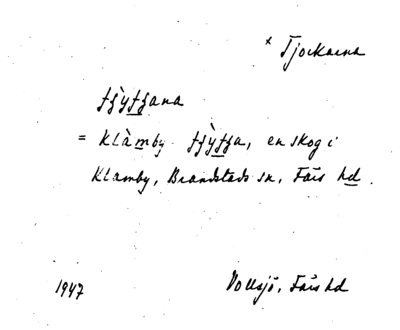 * Tjockarna
ʄʒỳʄʒana
= Klàmby ʄʒỳʄʒa, en skog i
Klamby, Brandstads sn, Färs hd.
1947 Vollsjö, Färs hd